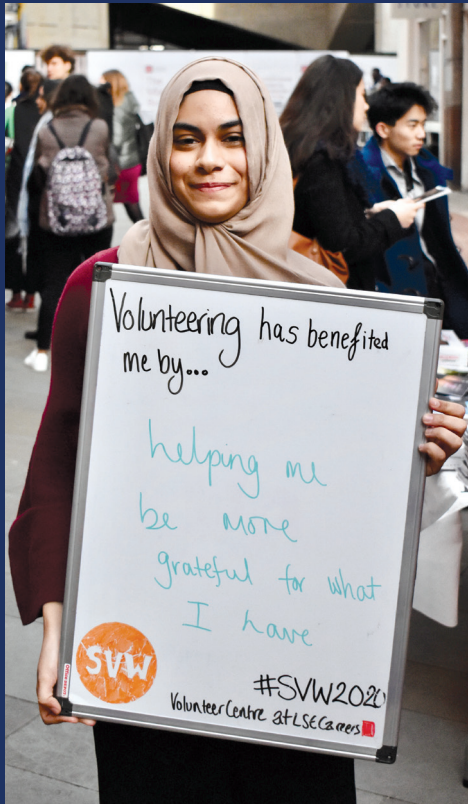 Volunteering has benefited
me by...
helping me
be more
grateful for what
I have
SVW
#SVW2020
Volunteer Centre at LSE Careers